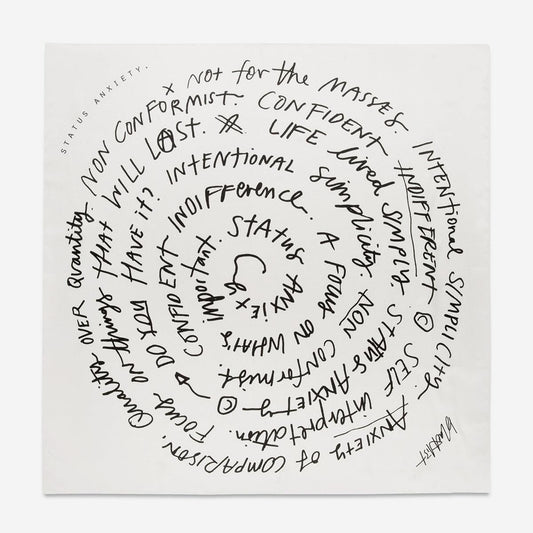 STATUS ANXIETY.
x NOT FOR THE MASSES INTENTIONAL SIMPLICITY. ANXIETY OF COMPARISON. QUALITY OVER QUANTITY. NON CONFORMIST.
CONFIDENT INDIFFERENT © SELF INTERPRETATION. FOCUS ON THINGS THAT WILL LAST.
LIFE LIVED SIMPLY. STATUS ANXIETY © DO YOU HAVE IT?
INTENTIONAL SIMPLICITY. NON CONFORMIST.
CONFIDENT INDIFFERENCE. A FOCUS ON WHATS important.
STATUS ANXIE x